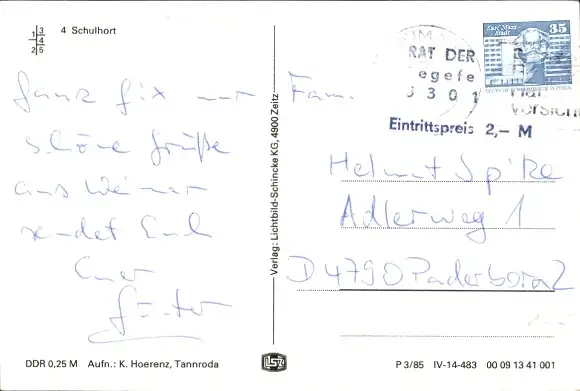 1 3
4
2 5
4 Schulhort
Ganz fix nur
schöne Grüße
aus Weimar
sendet Euch
Euer
Günter
Verlag: Lichtbild-Schincke KG, 4900 Zeitz
RAT DER
5301
Karl-Marx-Stadt
35
Eintrittspreis 2,– M
Fam.
Helmut Spike
Adlerweg 1
D 4790 Paderborn 2
DDR 0,25 M Aufn.: K. Hoerenz, Tannroda
P 3/85 IV-14-483 00 09 13 41 001